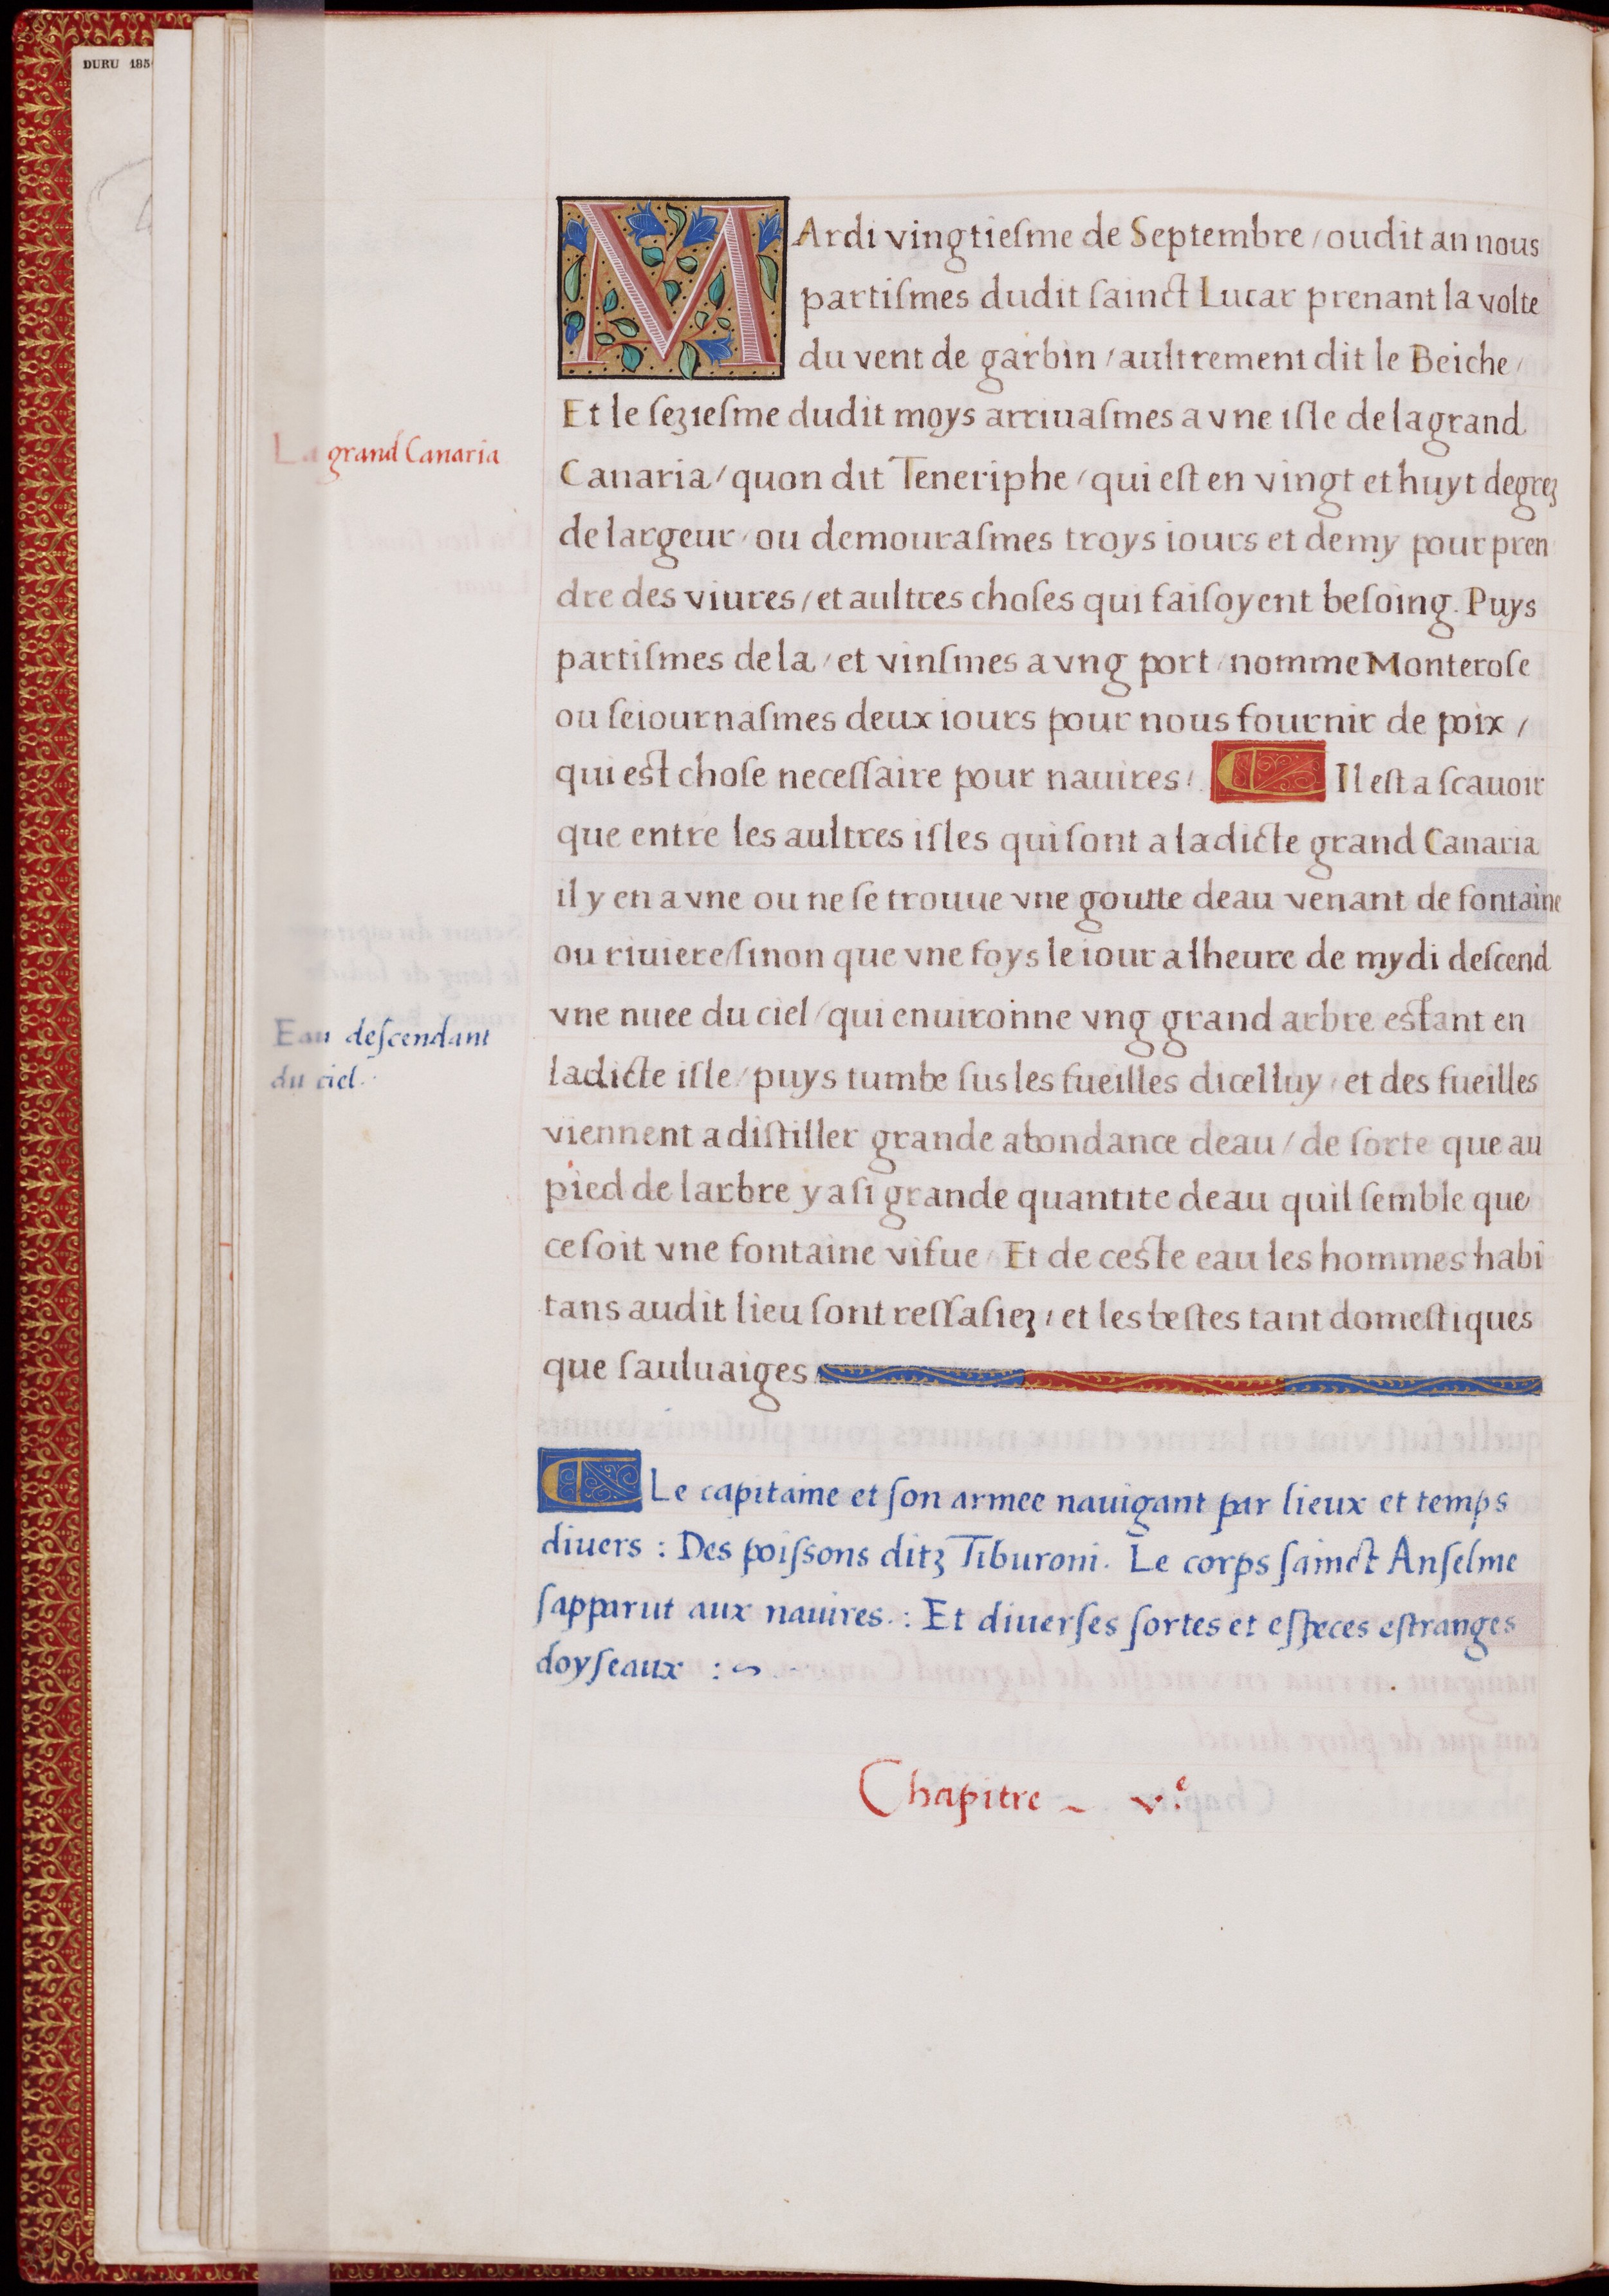 DURU 185
MArdi vingtiesme de Septembre / oudit an nous
partismes dudit sainct Lucar prenant la volte
du vent de garbin / aultrement dit le Beiche /
Et le seziesme dudit moys arriuasmes a vne isle de la grand
La grand Canaria
Canaria / quon dit Teneriphe / qui est en vingt et huyt degrez
de largeur / ou demourasmes troys iours et demy pour pren
dre des viures / et aultres choses qui faisoyent besoing. Puys
partismes de la / et vinsmes a vng port / nomme Monterose
ou seiournasmes deux iours pour nous fournir de poix /
qui est chose necessaire pour nauires / Il est a scauoir
que entre les aultres isles qui sont a ladicte grand Canaria
il y en a vne ou ne se trouue vne goutte deau venant de fontaine
ou riuiere / sinon que vne foys le iour a lheure de mydi descend
vne nuee du ciel / qui enuironne vng grand arbre estant en
Eau descendant
du ciel.
ladicte isle / puys tumbe sus les fueilles dicelluy / et des fueilles
viennent a distiller grande abondance deau / de sorte que au
pied de larbre y a si grande quantite deau quil semble que
ce soit vne fontaine vifue / Et de ceste eau les hommes habi
tans audit lieu sont ressasiez / et les bestes tant domestiques
que sauluaiges
Le capitaine et son armee nauigant par lieux et temps
diuers : Des poissons ditz Tiburoni. Le corps sainct Anselme
sapparut aux nauires. : Et diuerses sortes et especes estranges
doyseaux : ~
Chapitre ~ v.e